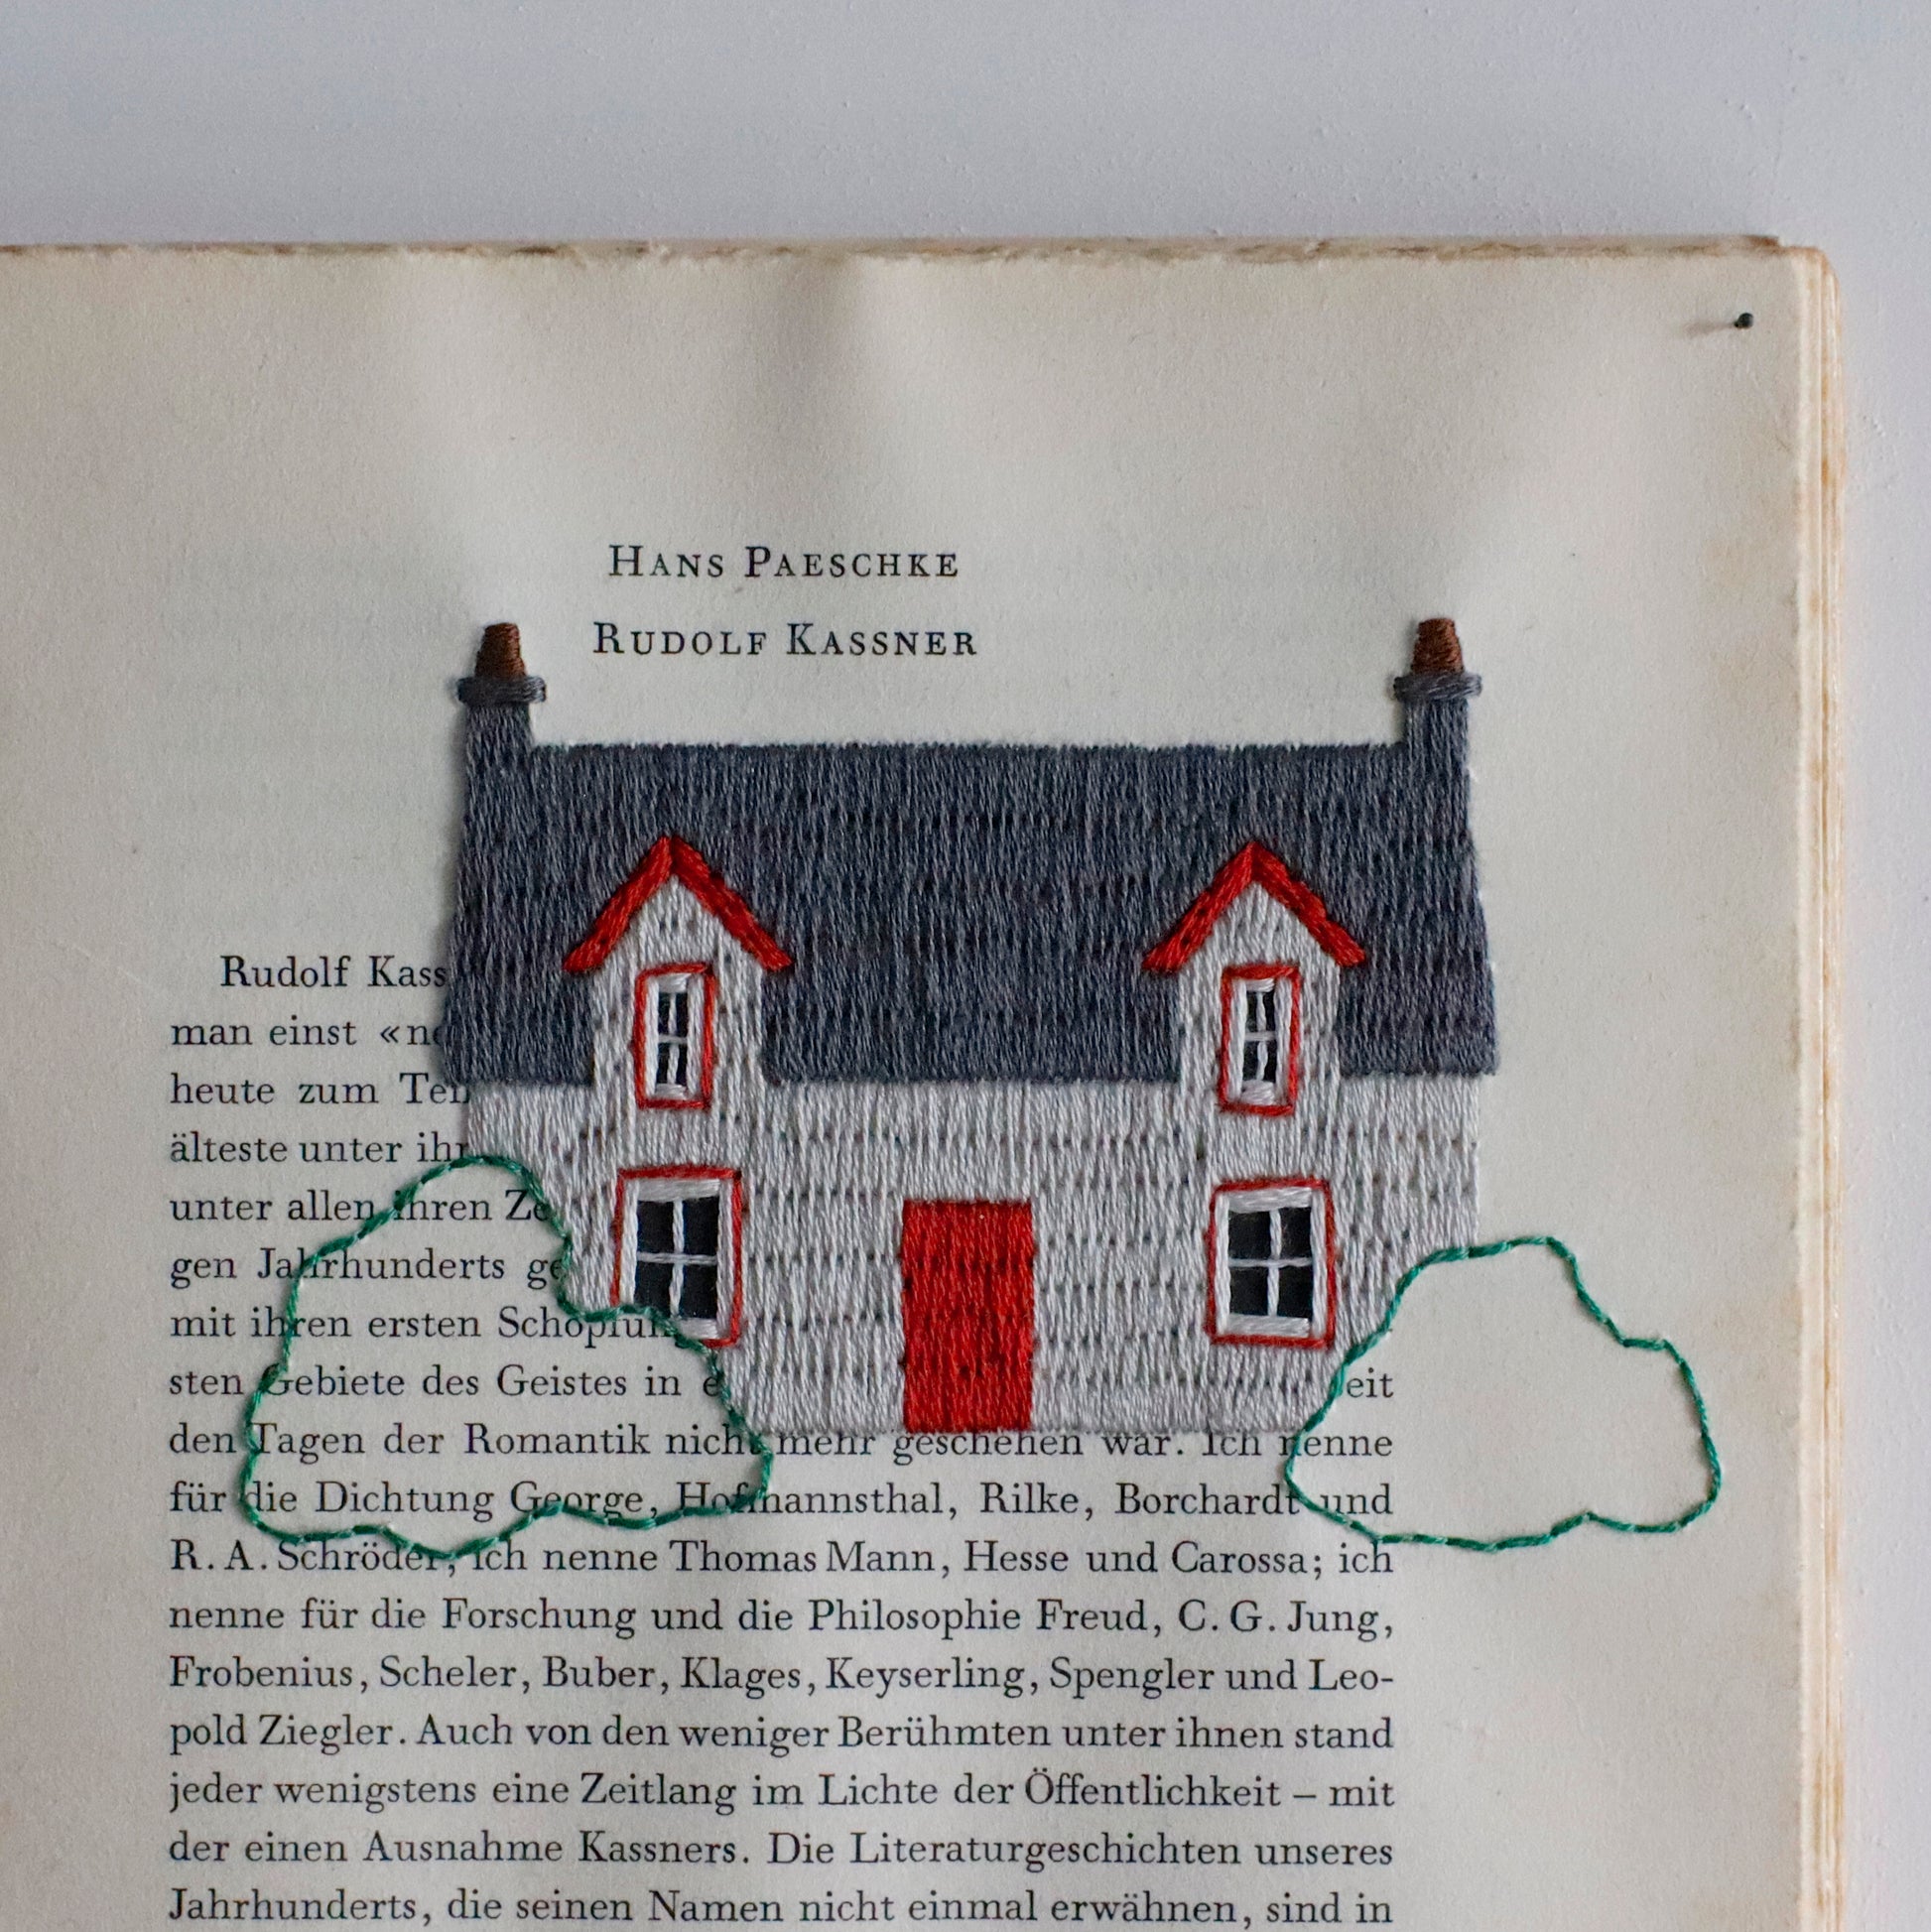 HANS PAESCHKE
RUDOLF KASSNER
Rudolf
man einst
heute zum
älteste unter
unter allen ihren
gen Jahrhunderts
mit ihren ersten
sten Gebiete des Geistes in
den Tagen der Romantik nicht mehr geschehen war. Ich nenne
für die Dichtung George, Hofmannsthal, Rilke, Borchardt und
R. A. Schröder; ich nenne Thomas Mann, Hesse und Carossa; ich
nenne für die Forschung und die Philosophie Freud, C. G. Jung,
Frobenius, Scheler, Buber, Klages, Keyserling, Spengler und Leo-
pold Ziegler. Auch von den weniger Berühmten unter ihnen stand
jeder wenigstens eine Zeitlang im Lichte der Öffentlichkeit – mit
der einen Ausnahme Kassners. Die Literaturgeschichten unseres
Jahrhunderts, die seinen Namen nicht einmal erwähnen, sind in